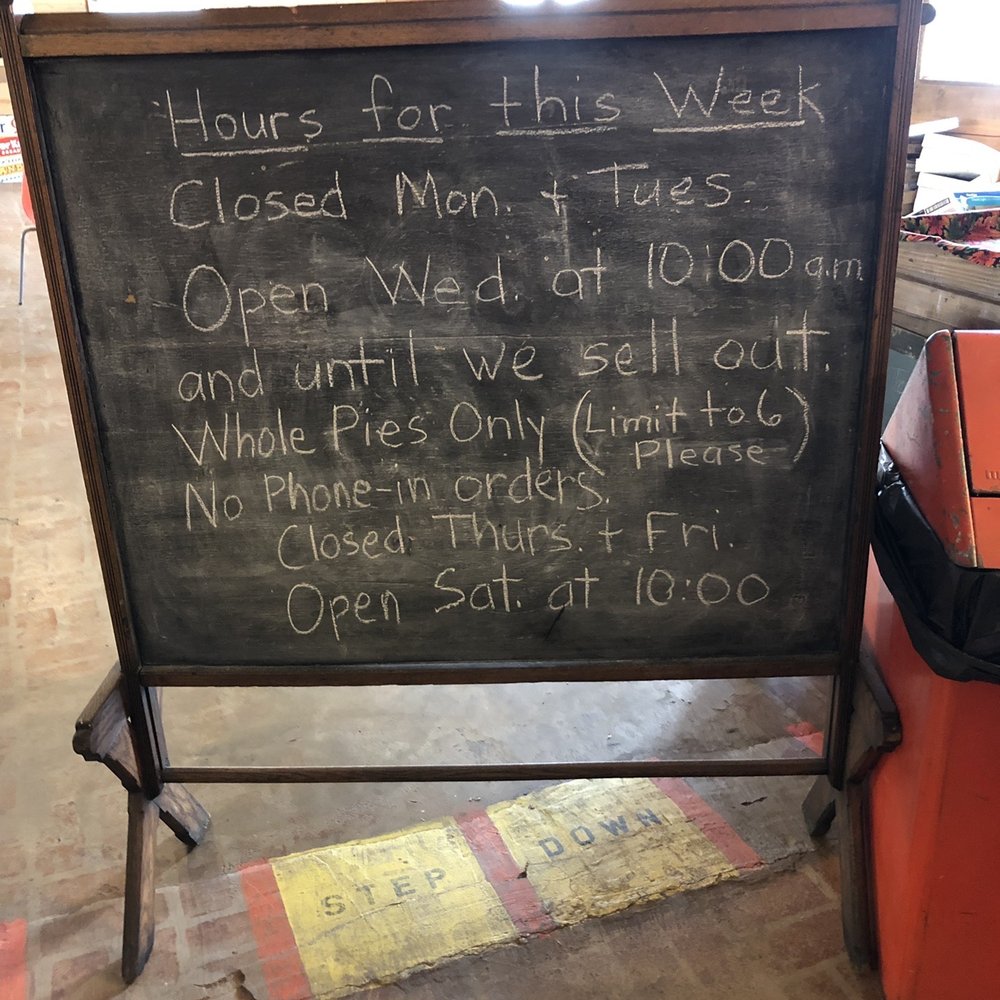 Hours for this Week
Closed Mon. + Tues.
Open Wed. at 10:00 a.m.
and until we sell out.
Whole Pies Only (Limit to 6
Please)
No Phone-in orders.
Closed Thurs. + Fri.
Open Sat. at 10:00
STEP DOWN